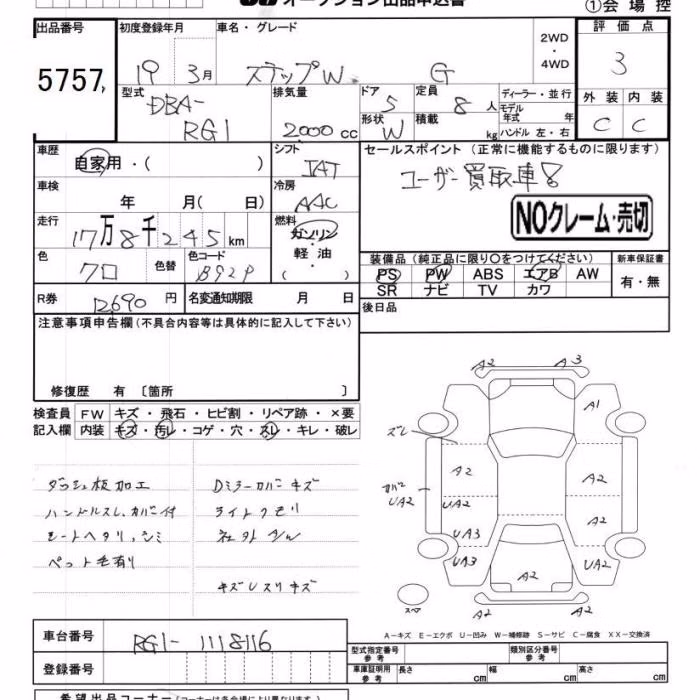 オークション出品申込書
①会場控
出品番号 初度登録年月 車名・グレード 2WD ・ 4WD 評価点
5757 19 3月 ステップW G 3
型式 排気量 ドア 定員 ディーラー・並行 外装 内装
DBA- 5 8人 モデル年式 年 C C
RG1 2000cc 形状 W 積載 kg ハンドル 左・右
車歴 シフト セールスポイント (正常に機能するものに限ります)
自家用・( ) IAT ユーザー買取車!
車検 冷房
年 月( 日) AAC NOクレーム・売切
走行 燃料
17万8千245km ガソリン・軽油・( )
色 色替 色コード 装備品(純正品に限り〇をつけてください) 新車保証書
クロ B92P PS PW ABS エアB AW 有・無
SR ナビ TV カワ
R券 12690円 名変通知期限 月 日 後日品
注意事項申告欄(不具合内容等は具体的に記入して下さい)
修復歴 有 〔箇所 〕
検査員記入欄 FW キズ・飛石・ヒビ割・リペア跡・×要
内装 キズ・汚レ・コゲ・穴・スレ・キレ・破レ
A2 A3
A1
ズレ
A2 A2
カバー UA2 UA2 A2
UA3
UA3 UA2
A2
スペア A2 A2
ダッシュ板加工 Dミラーカバーキズ
ハンドルスレ、カバー付 ライトクモリ
シートヘタリ、シミ 社外
ペット毛有り
キズUスリキズ
A-キズ E-エクボ U-凹み W-補修跡 S-サビ C-腐食 XX-交換済
車台番号 RG1-1118116
型式指定番号 参考 類別区分番号 参考
登録番号 車庫証明用 参考 長さ cm 幅 cm 高さ cm
希望出品コーナー(コーナーは各会場により異なります)